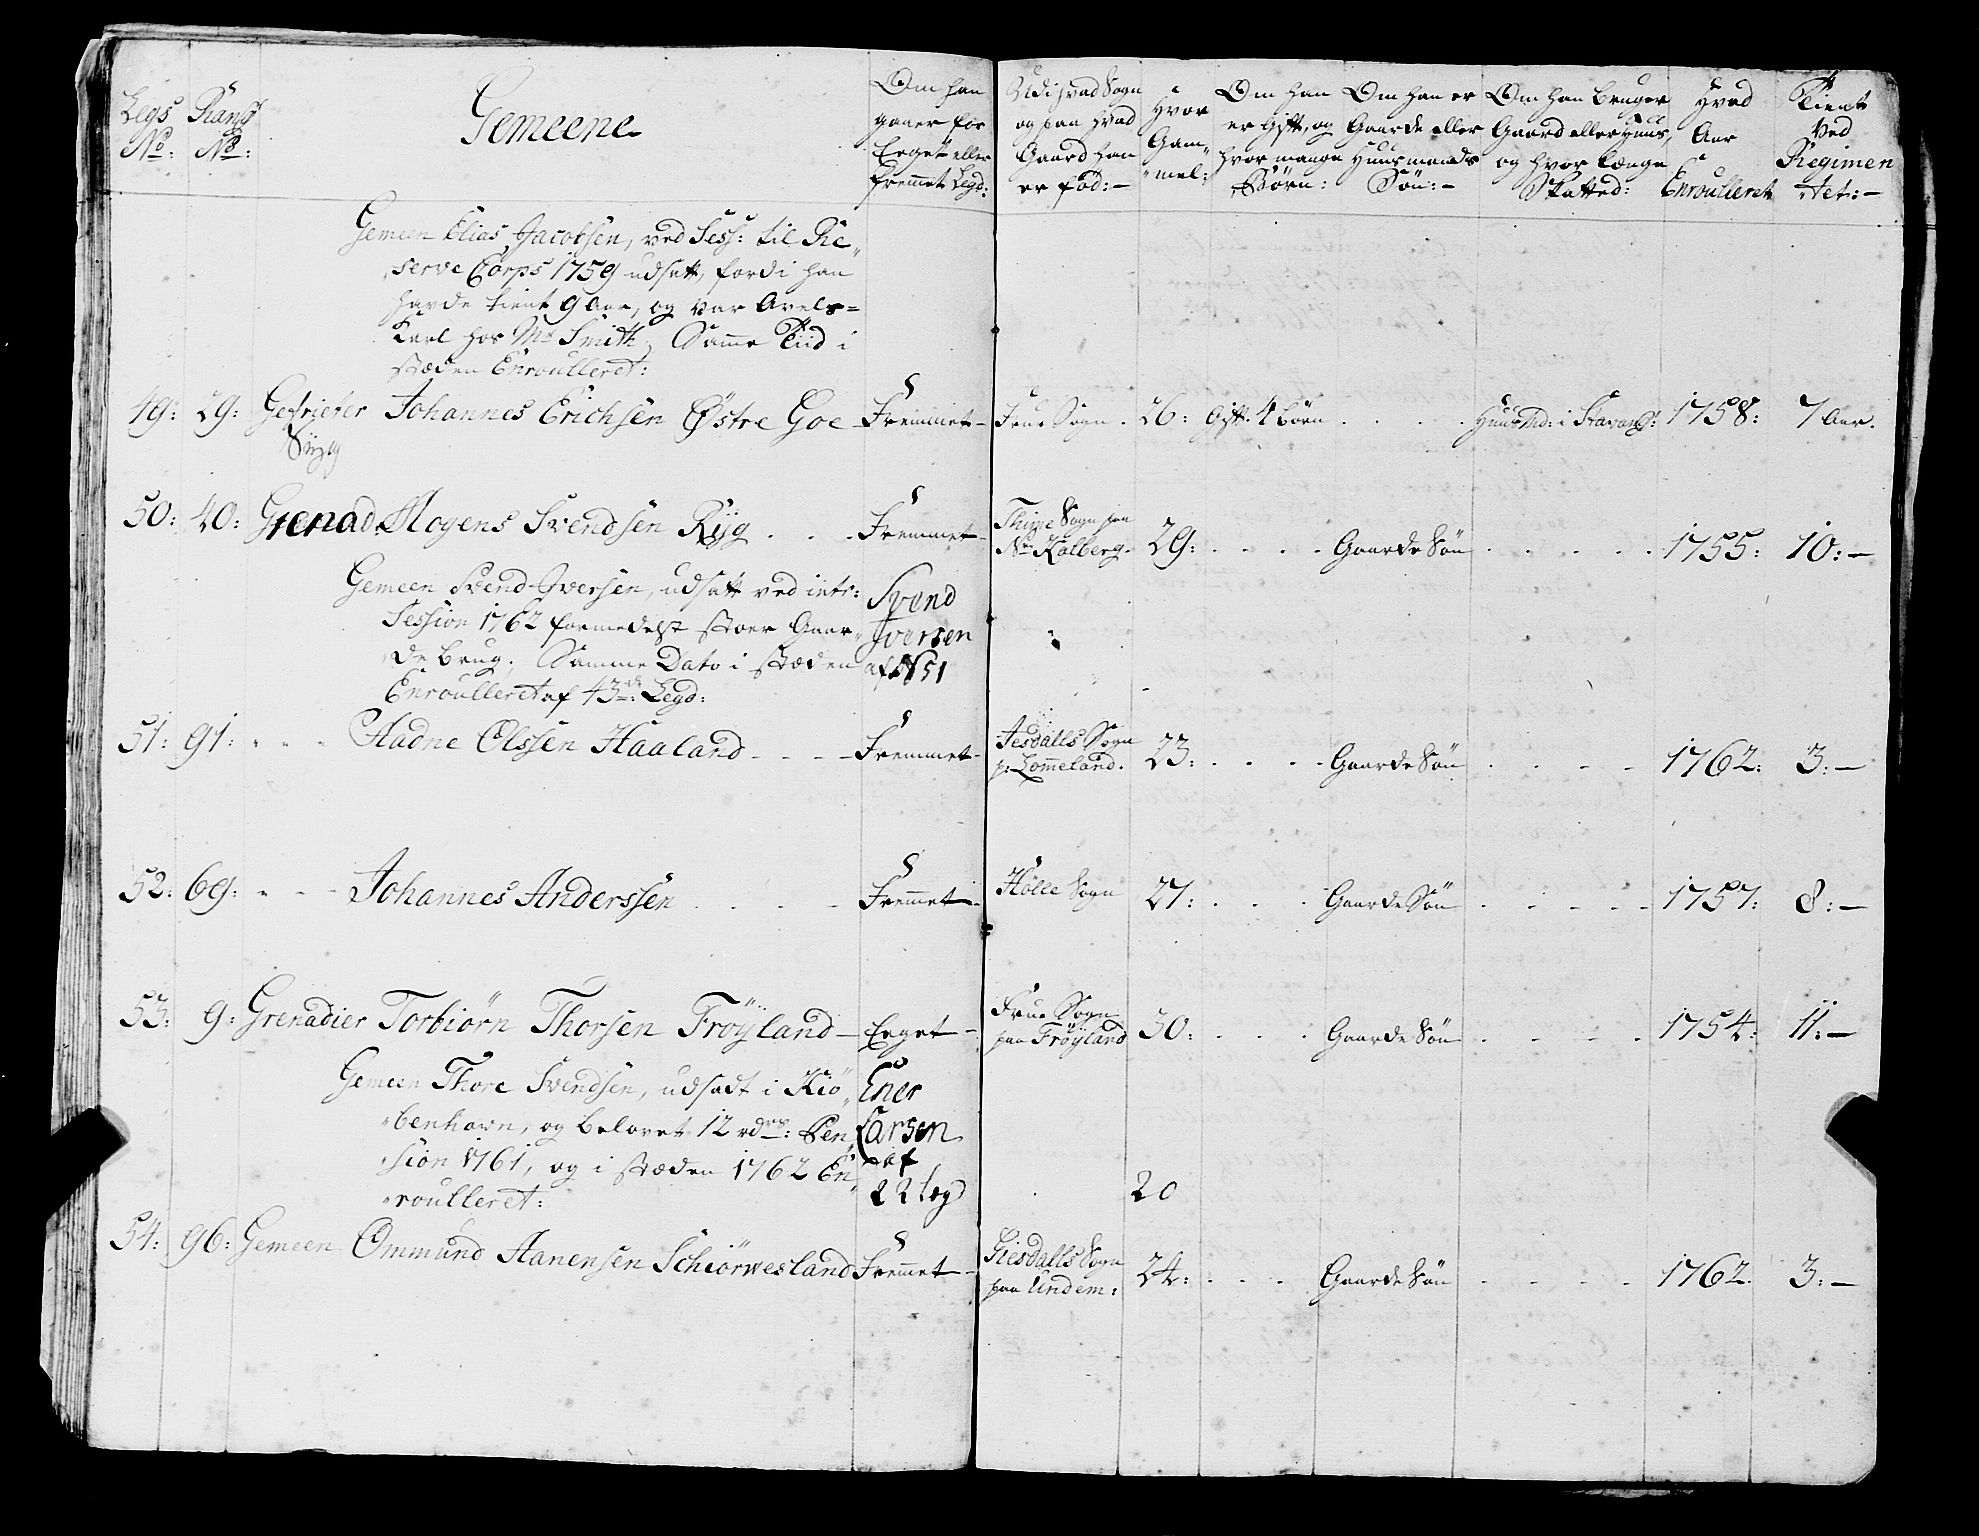 Legs No: Rangs No: Gemeene Om han gaaer for Eeget eller fremmet Legd: Udi hvad Sogn og paa hvad Gaard han er fød:— Hvor Gam„ „mel: Om han er Gift, og hvor mange Børn: Om han er Gaarde eller Huusmands Søn:— Om han bruger Gaard eller Huus, og hvor længe Skatted: Hvad Aar Enroulleret Tient Ved Regimen „tet:—
Gemeen Elias Jacobsen, ved Sess: til Re„
„serve Corps 1759 udsatt, fordi han
havde tient 9 Aar, og var Avels=
Karl hos Mr Smith, Samme Tiid i
stæden Enroulleret:
49: 29: Gefriefer Johannes Erichsen Østre Goe — Fremmet — Frue Sogn. 26: Gift. 4 børn . . . . Huusmd: i Stavang: 1758: 7 Aar.
Syg
50: 40: Grenad. Mogens Svendsen Rÿg . . . Fremmet — Thime Sogn paa Nr Kalberg. 29: . . . . Gaarde Søn . . . . . 1755: 10:—
Gemeen Svend Iversen, udsatt ved intr: Svend
Session 1762 formedelst stoer Gaar„ Iversen
„de brug; Samme Dato i stæden af No 51
Enroulleret af 43de Legd:
51: 91: „ „ „ Hadne Olssen Haaland — — — Fremmet — Jesdalls Sogn p: Lommeland. 23: . . . . Gaarde Søn . . . . 1762: 3:—
52: 69: „ „ „ Johannes Anderssen . . . . Fremmet — Hølle Sogn 27: . . . Gaarde Søn . . . . . 1757: 8:—
53: 9: Grenadier Torbiørn Thorsen Frøÿland — Eeget — Frue Sogn paa Frøÿland 30: . . . Gaarde Søn . . . . 1754: 11:—
Gemeen Thore Svendsen, udsadt i Kiø„ Ener
„benhavn, og belovet 12 rdrs: Pen„ Larsen
„sion 1761, og i stæden 1762 En„ af
„roulleret: 22 legd 20
54: 96: Gemeen Ommund Aanensen Schiørwesland Fremmet — Giesdalls Sogn paa Undem: 24: . . . Gaarde Søn . . . . 1762. 3:—